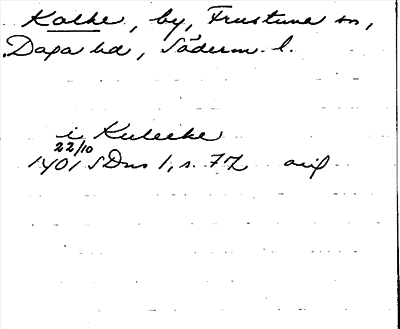 Kolke, by, Frustuna sn,
Daga hd, Söderm. l.
i Kulecke
22/10
1401 SDns 1, s. 72 avs